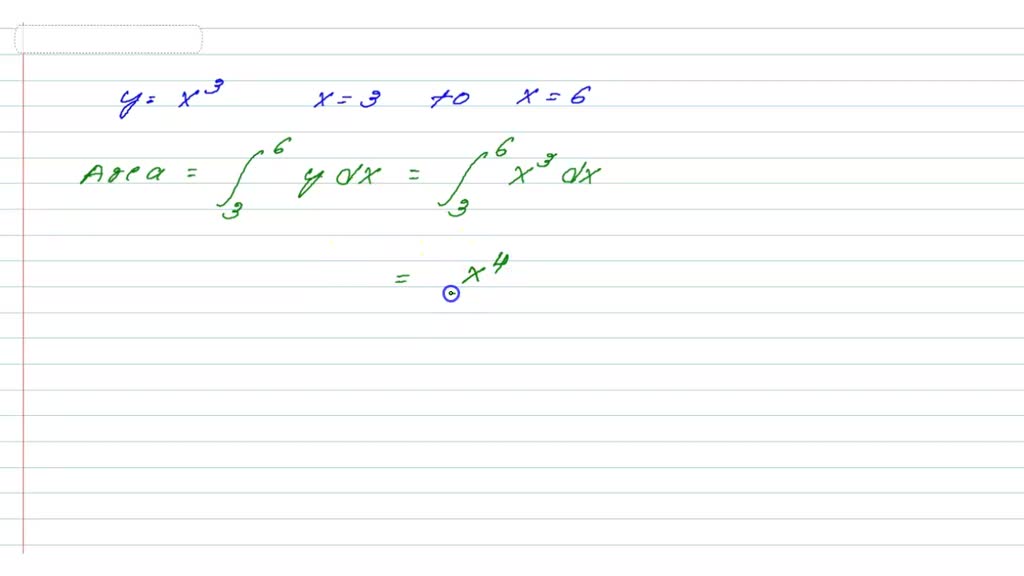 y = x³ x = 3 to x = 6
Area = ∫₃⁶ y dx = ∫₃⁶ x³ dx
= x⁴